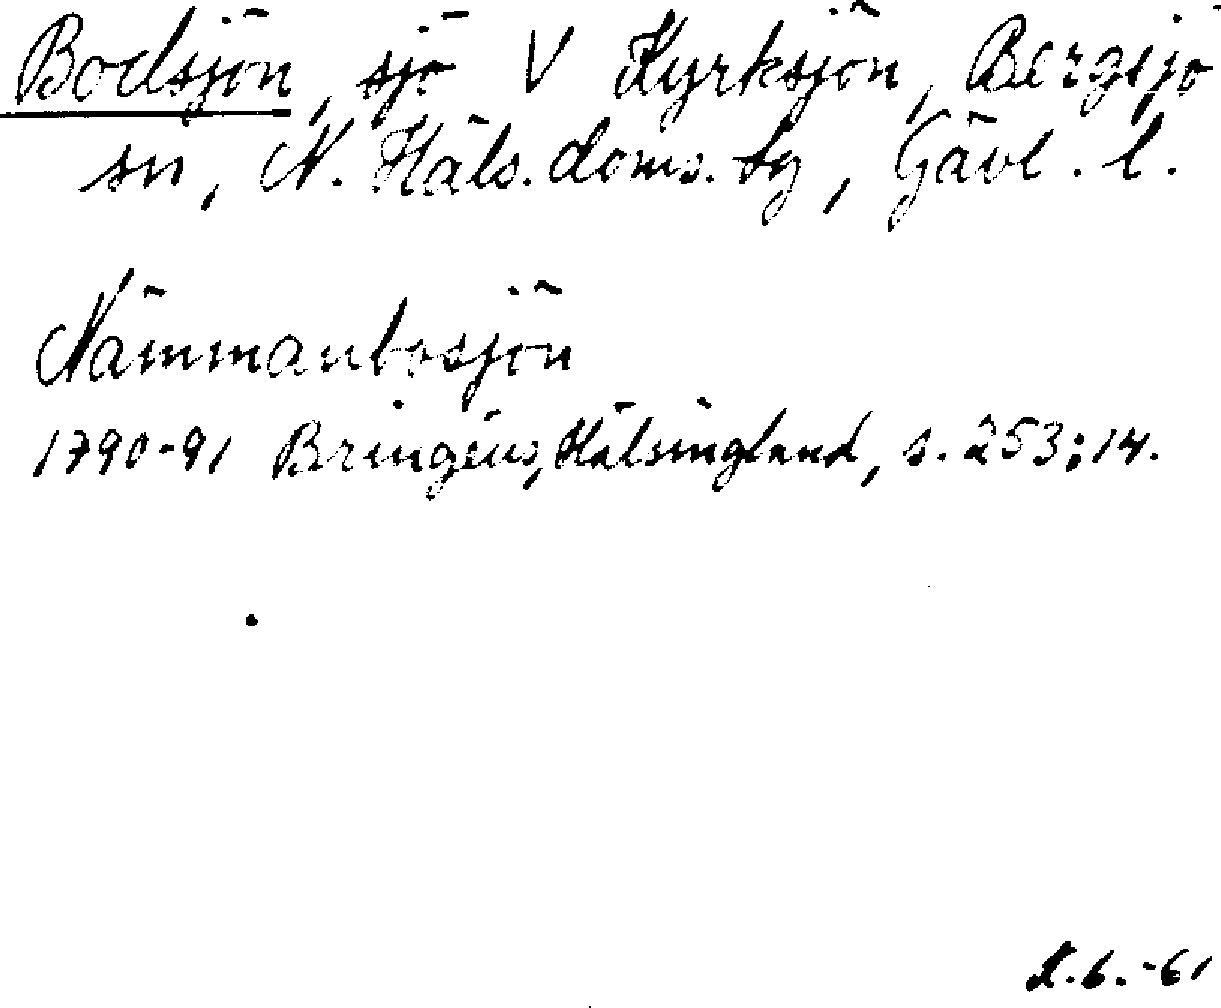 Bodsjön, sjö V Kyrksjön, Bergsjö
sn, N. Häls. doms. tg, Gävl. l.
Nämmanbosjön
1790-91 Bringéus, Hälsingland, s. 253:14.